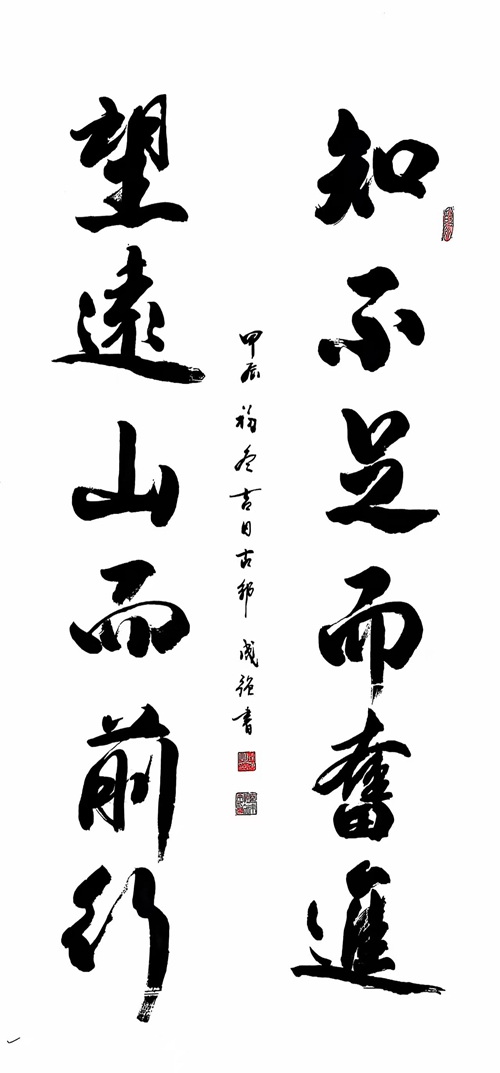 知不足而奮進
望遠山而前行
甲辰初冬吉日古邦成強書